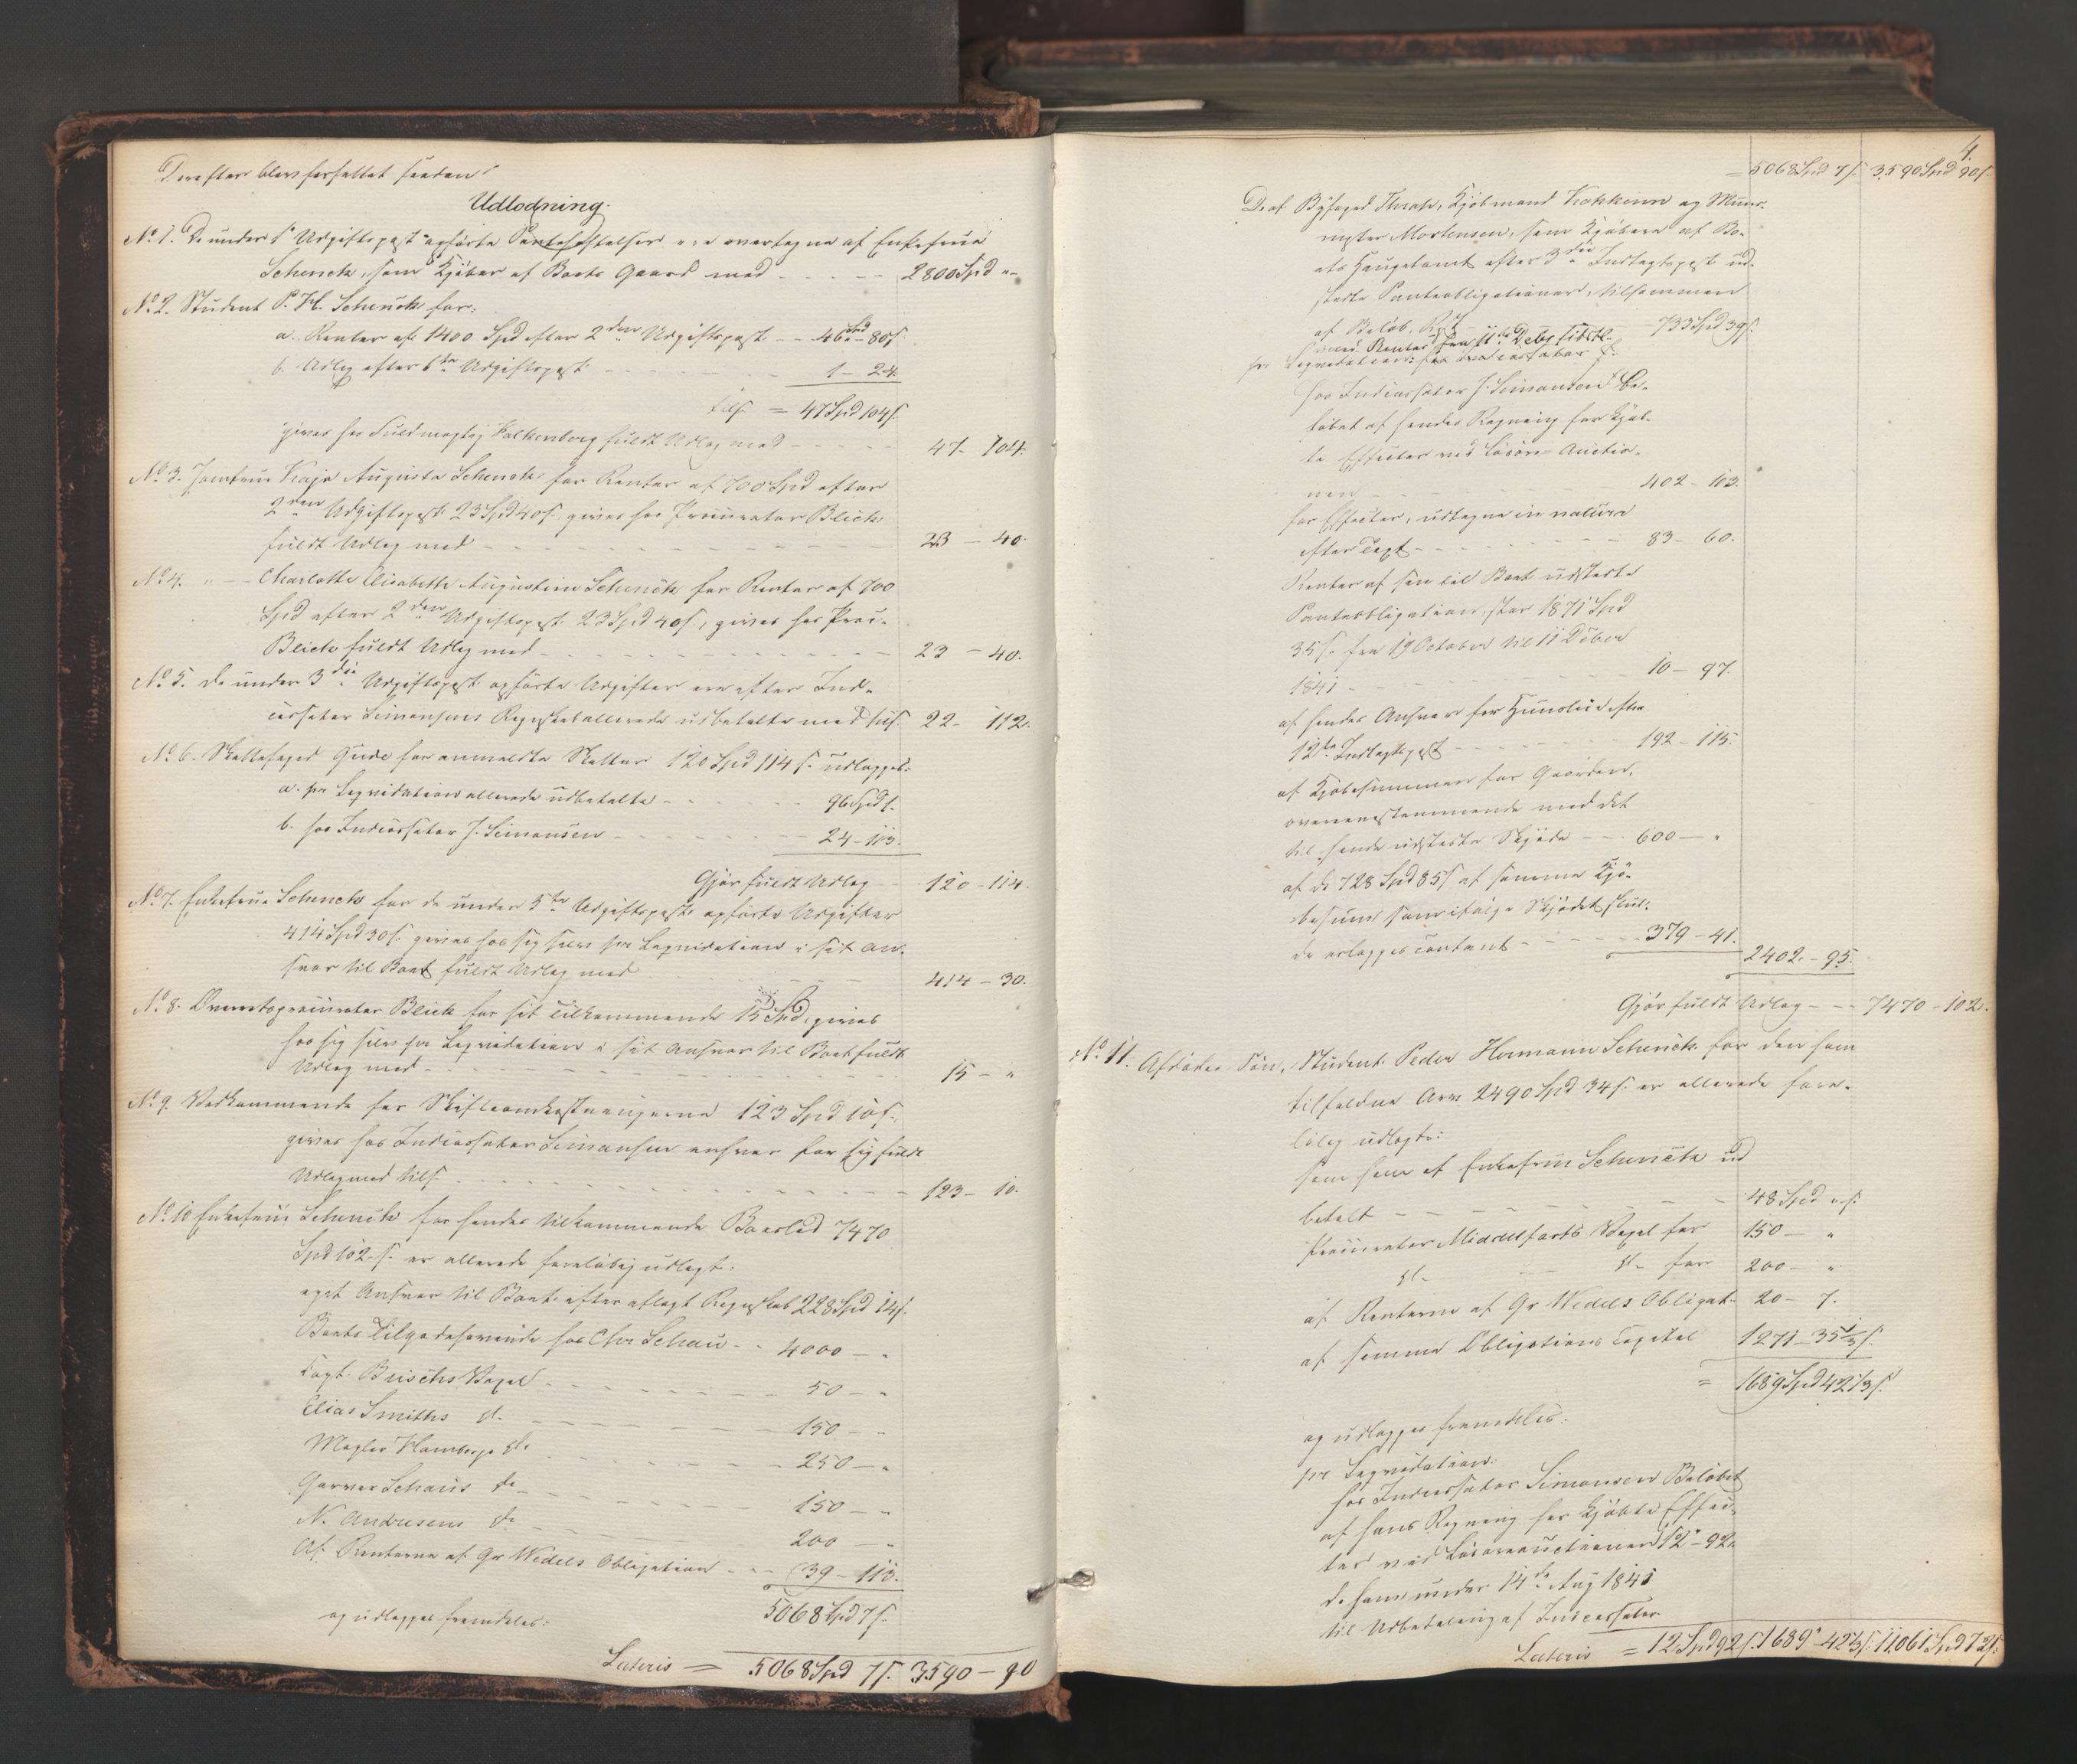 Derefter blev forfattet saadan
Udlodning.
No 1. De under 1ste Udgiftspost opførte Panteheftelser ere overtagne af Enkefrue
Schenck, som Kjøber af Boets Gaard med - - - - 2800 Spd "
No 2. Student P. H. Schenck for:
a. Renter af 1400 Spd efter 2den Udgiftspost - - 46 Spd - 80 s.
b. Udlæg efter 6te Udgiftspost - - - - - 1 - 24.
tils. = 47 Spd 104 s.
gives hos Fuldmægtig Falkenborg fuldt Udlæg med - - - 47 - 104.
No 3. Jomfrue Kaja Augusta Schenck for Renter af 700 Spd efter
2den Udgiftspost 23 Spd 40 s. gives hos Procurator Blich
fuldt Udlæg med - - - - - - - 23 - 40.
No 4. " - Charlotte Elisabeth Augustine Schenck for Renter af 700
Spd efter 2den Udgiftspost 23 Spd 40 s, gives hos Proc.
Blich fuldt Udlæg med - - - - - - - 23 - 40.
No 5. De under 3die Udgiftspost opførte Udgifter ere efter Ind-
cassator Simonsens Regnskab allerede udbetalte med tils. 22 - 112.
No 6. Skattefoged Gude for anmeldte Skatter 120 Spd 114 s. udlægges:
a. pr Liqvidation allerede udbetalte - - - - 96 Spd s.
b. hos Incassator J. Simonsen - - - - - 24 - 113.
Gjør fuldt Udlæg - - 120 - 114.
No 7. Enkefrue Schenck for de under 5te Udgiftspost opførte Udgifter
414 Spd 30 s. gives hos sig selv pr Liqvidation i sit An-
svar til Boet fuldt Udlæg med - - - 414 - 30.
No 8. Overretsprocurator Blich for sit Tilkommende 15 Spd, gives
hos sig selv pr Liqvidation i sit Ansvar til Boet fuldt
Udlæg med - - - - - - - 15 - "
No 9. Vedkommende for Skifteomkostningerne 123 Spd 10 s.
gives hos Indcassator Simonsen ansvar for sig fuldt
Udlæg med tils. - - - - - - - 123 - 10.
No 10 Enkefrue Schenck for hendes tilkommende Boeslod 7470
Spd 102 s. er allerede foreløbig udlagt:
eget Ansvar til Boet efter aflagt Regnskab 228 Spd 14 s.
Boets Tilgodehavende hos Chr Schau - - 4000 - "
Capt. Buschs Vexel - - - - - 50 - "
Elias Smiths do. - - - - - 150 - "
Mægler Hambergs do - - - - - 250 - "
Garver Schaus do - - - - - 150 - "
N. Andresens do - - - - - 200 - "
Af Renterne af Gr Wedels Obligation - - 39 - 113.
5068 Spd 7 s.
og udlægges fremdeles:
Lateris = 5068 Spd 7 s. 3590 - 90
4.
= 5068 Spd 7 s. 3590 Spd 90 s.
De af Byfoged Thrane, Kjøbmand Kokkinn og Muur-
mester Mortensen, som Kjøbere af Bo-
ets efter 3die Indtægtspost ud-
stedte Panteobligationer, tilsammen
af Beløb - - 733 Spd 39 s.
med Renter fra 11te Deter sidstl.
pr Liqvidation:
hos Indcassator J. Simonsen Be-
løbet af hendes Regning for kjøb-
te Effecter ved Løsøre-Auctio-
nen - - - - - 402 - 113.
for Effecter, udtagne in natura
efter Taxt - - - - - 83 - 60.
Renter af sin til Boet udstedte
Panteobligation, stor 1871 Spd
35 s. fra 19 October til 11 Dcber
1841 - - - - - 10 - 97.
af hendes Ansvar for Huusleie efter
12te Indtægtspost - - - - 192 - 115.
af Kjøbesummen for Gaarden,
overeensstemmende med det
til hende udstedte Skjøde - - - 600 - "
af de 728 Spd 85 s af samme Kjø-
besum som ifølge Skjødet skul-
de erlægges contant - - - - 379 - 41.
2402 - 95.
Gjør fuldt Udlæg - - - 7470 - 102.
No 11. Afdødes Søn, Student Peder Hermann Schenck for den ham
tilfaldne Arv 2490 Spd 34 s. er allerede fore-
løbig udlagt:
som ham af Enkefrue Schenck ud
betalt - - - - - - - 48 Spd " s.
Procurator Middelfarts Vexel for 150 - "
do - do for 200 - "
af Renterne af Gr Wedels Obligat. 20 - 7.
af samme Obligations Capital 1271 - 35 1/3 s.
= 1689 Spd 42 1/3 s.
og udlægges fremdeles:
pr Liqvidation:
hos Indcassator Simonsen Beløbet
af hans Regning for kjøbte Effec-
ter ved Løsøreauctionen 12 - 92.
de ham under 14de Aug 1841
til Udbetaling af Indcassator
Lateris = 12 Spd 92 s. 1689 - 42 1/3 s. 11,061 Spd 72 s.